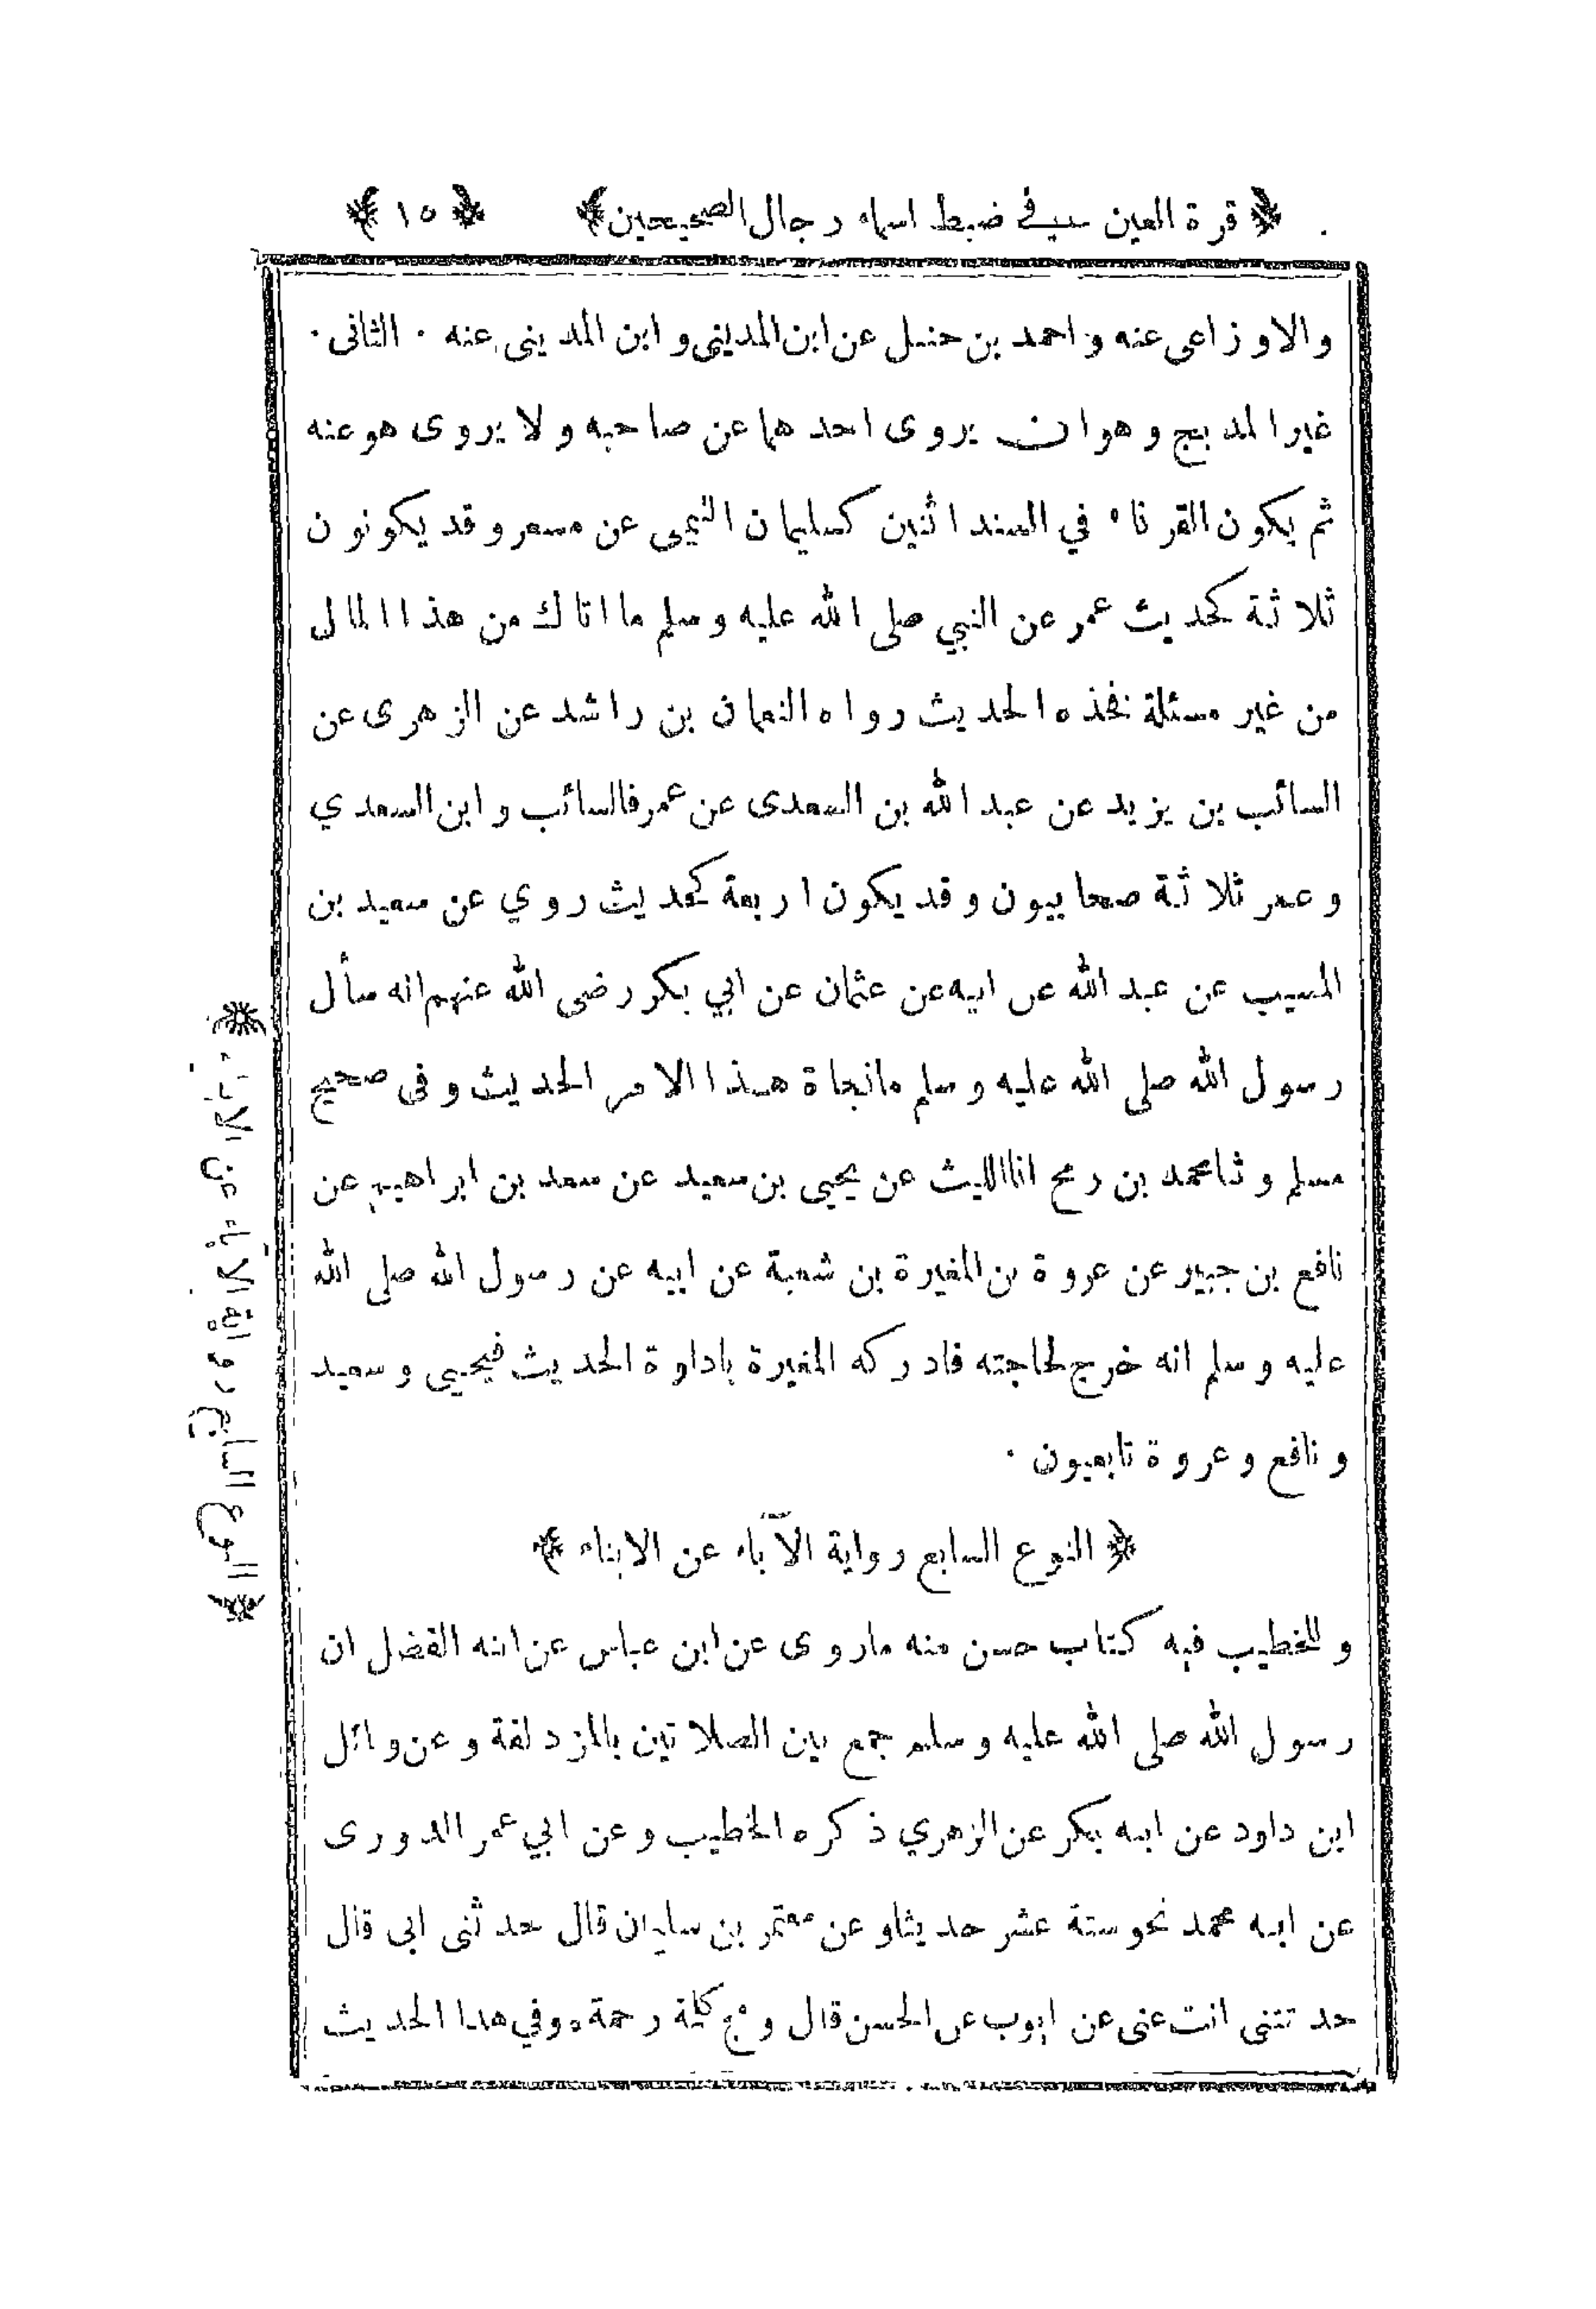 ﴿ قرة العين في ضبط اسماء رجال الصحيحين ﴾ ﴿ ١٥ ﴾
والاوزاعى عنه واحمد بن حنبل عن ابن المدينى وابن المدينى عنه ٠ الثانى ٠
غير المدبج وهو ان يروى احدهما عن صاحبه ولا يروى هو عنه
ثم يكون القرناء في السند اثنين كسليمان التيمى عن مسعر وقد يكونون
ثلاثة كحديث عمر عن النبي صلى الله عليه وسلم ما اتاك من هذا المال
من غير مسئلة فخذه الحديث رواه النعمان بن راشد عن الزهرى عن
السائب بن يزيد عن عبد الله بن السعدى عن عمر فالسائب وابن السعدي
وعمر ثلاثة صحابيون وقد يكون اربعة كحديث روي عن سعيد بن
المسيب عن عبد الله عن ابيه عن عثمان عن ابي بكر رضى الله عنهم انه سأل
رسول الله صلى الله عليه وسلم مانجاة هذا الامر الحديث وفى صحيح
مسلم وثنا محمد بن رمح انا الليث عن يحيى بن سعيد عن سعد بن ابراهيم عن
نافع بن جبير عن عروة بن المغيرة بن شعبة عن ابيه عن رسول الله صلى الله
عليه وسلم انه خرج لحاجته فادركه المغيرة باداوة الحديث فيحيى وسعيد
ونافع وعروة تابعيون ٠
﴿ النوع السابع رواية الآباء عن الابناء ﴾
وللخطيب فيه كتاب حسن منه ماروى عن ابن عباس عن ابنه الفضل ان
رسول الله صلى الله عليه وسلم جمع بين الصلاتين بالمزدلفة وعن وائل
ابن داود عن ابنه بكر عن الزهري ذكره الخطيب وعن ابي عمر الدورى
عن ابنه محمد نحو ستة عشر حديثا وعن معتمر بن سليمان قال حدثنى ابى قال
حدثتنى انت عنى عن ايوب عن الحسن قال ويح كلمة رحمة وفي هذا الحديث
﴿ النوع السابع رواية الاباء عن الابناء ﴾